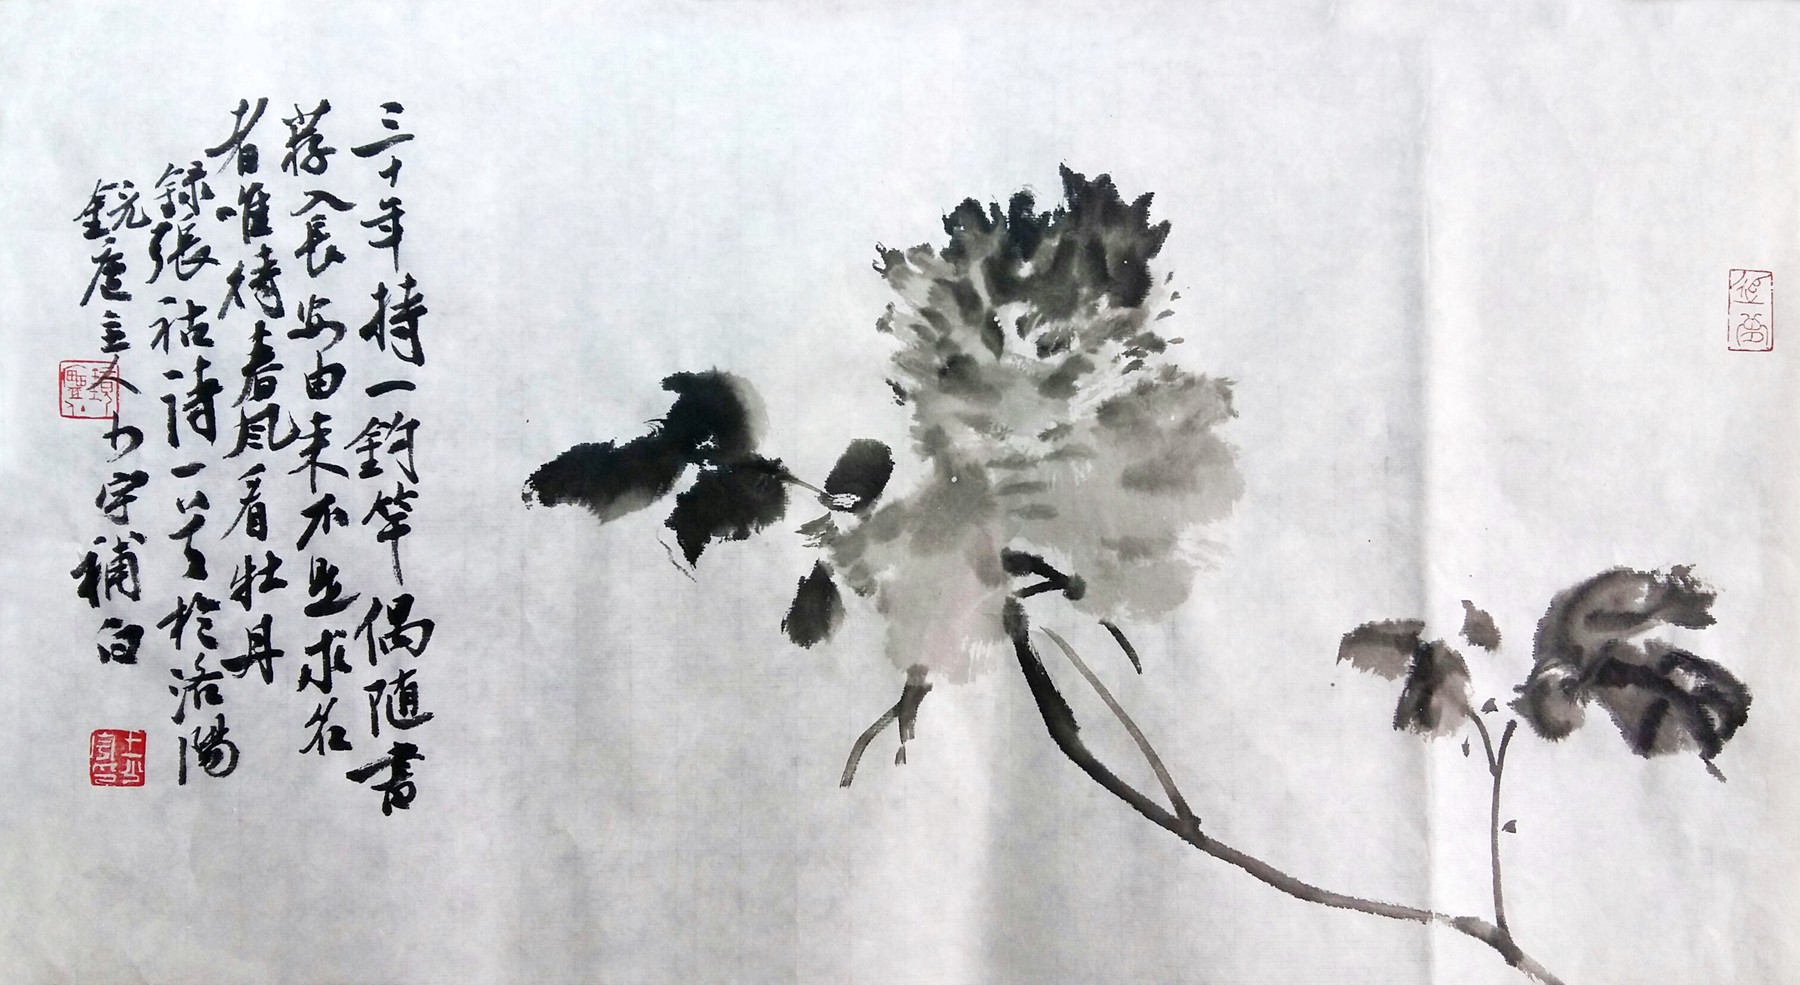 三十年持一釣竿偶隨書
薦入長安由來不是求名
者唯待春風看牡丹
錄張祜詩一首於洛陽
主人少宇補白